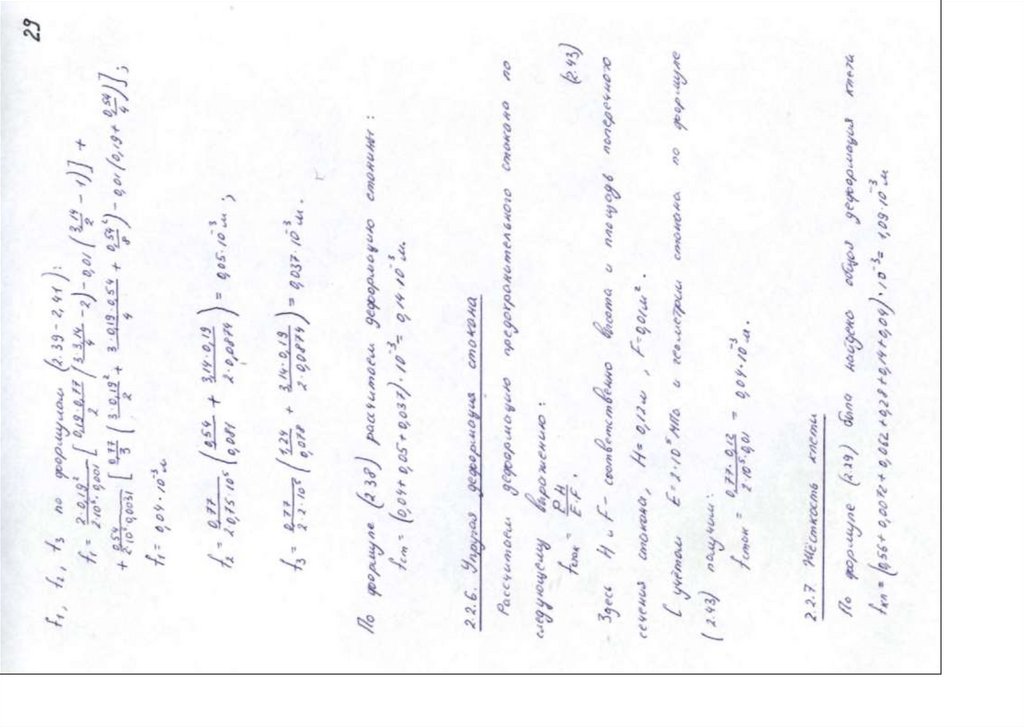 29
f₁, f₂, f₃ по формулам (2.39-2,41):
f₁ = 2·0,19² / 2·10⁵·0,001 [ 0,19·0,77 / 2 ( 3·3,14 / 4 - 2) - 0,01 ( 3,14 / 2 - 1)] +
+ 0,54 / 2·10⁵·0,0031 [ 0,77 / 3 ( 3·0,19² / 2 + 3·0,19·0,54 / 4 + 0,54² / 8 ) - 0,01 (0,19 + 0,54 / 4 )];
f₁ = 0,04·10⁻³ м
f₂ = 0,77 / 2·0,75·10⁵ ( 0,54 / 0,081 + 3,14·0,19 / 2·0,0874 ) = 0,05·10⁻³ м;
f₃ = 0,77 / 2·2·10⁵ ( 1,24 / 0,078 + 3,14·0,19 / 2·0,0874 ) = 0,037·10⁻³ м.
По формуле (2.38) рассчитаем деформацию станины:
fст = (0,04+0,05+0,037)·10⁻³ = 0,14·10⁻³ м.
2.2.6. Упругая деформация стакана
Рассчитаем деформацию предохранительного стакана по
следующему выражению:
fстак = P·H / E·F. (2.43)
Здесь H и F - соответственно высота и площадь поперечного
сечения стакана, H = 0,12м, F = 0,01м².
С учётом E = 2·10⁵ МПа и геометрии стакана по формуле
(2.43) получим:
fстак = 0,77·0,12 / 2·10⁵·0,01 = 0,04·10⁻³ м.
2.2.7 Жёсткость клети
По формуле (2.29) была найдена общая деформация клети
fкл = (0,56+0,0076+0,062+0,28+0,14+0,04)·10⁻³ = 1,09·10⁻³ м